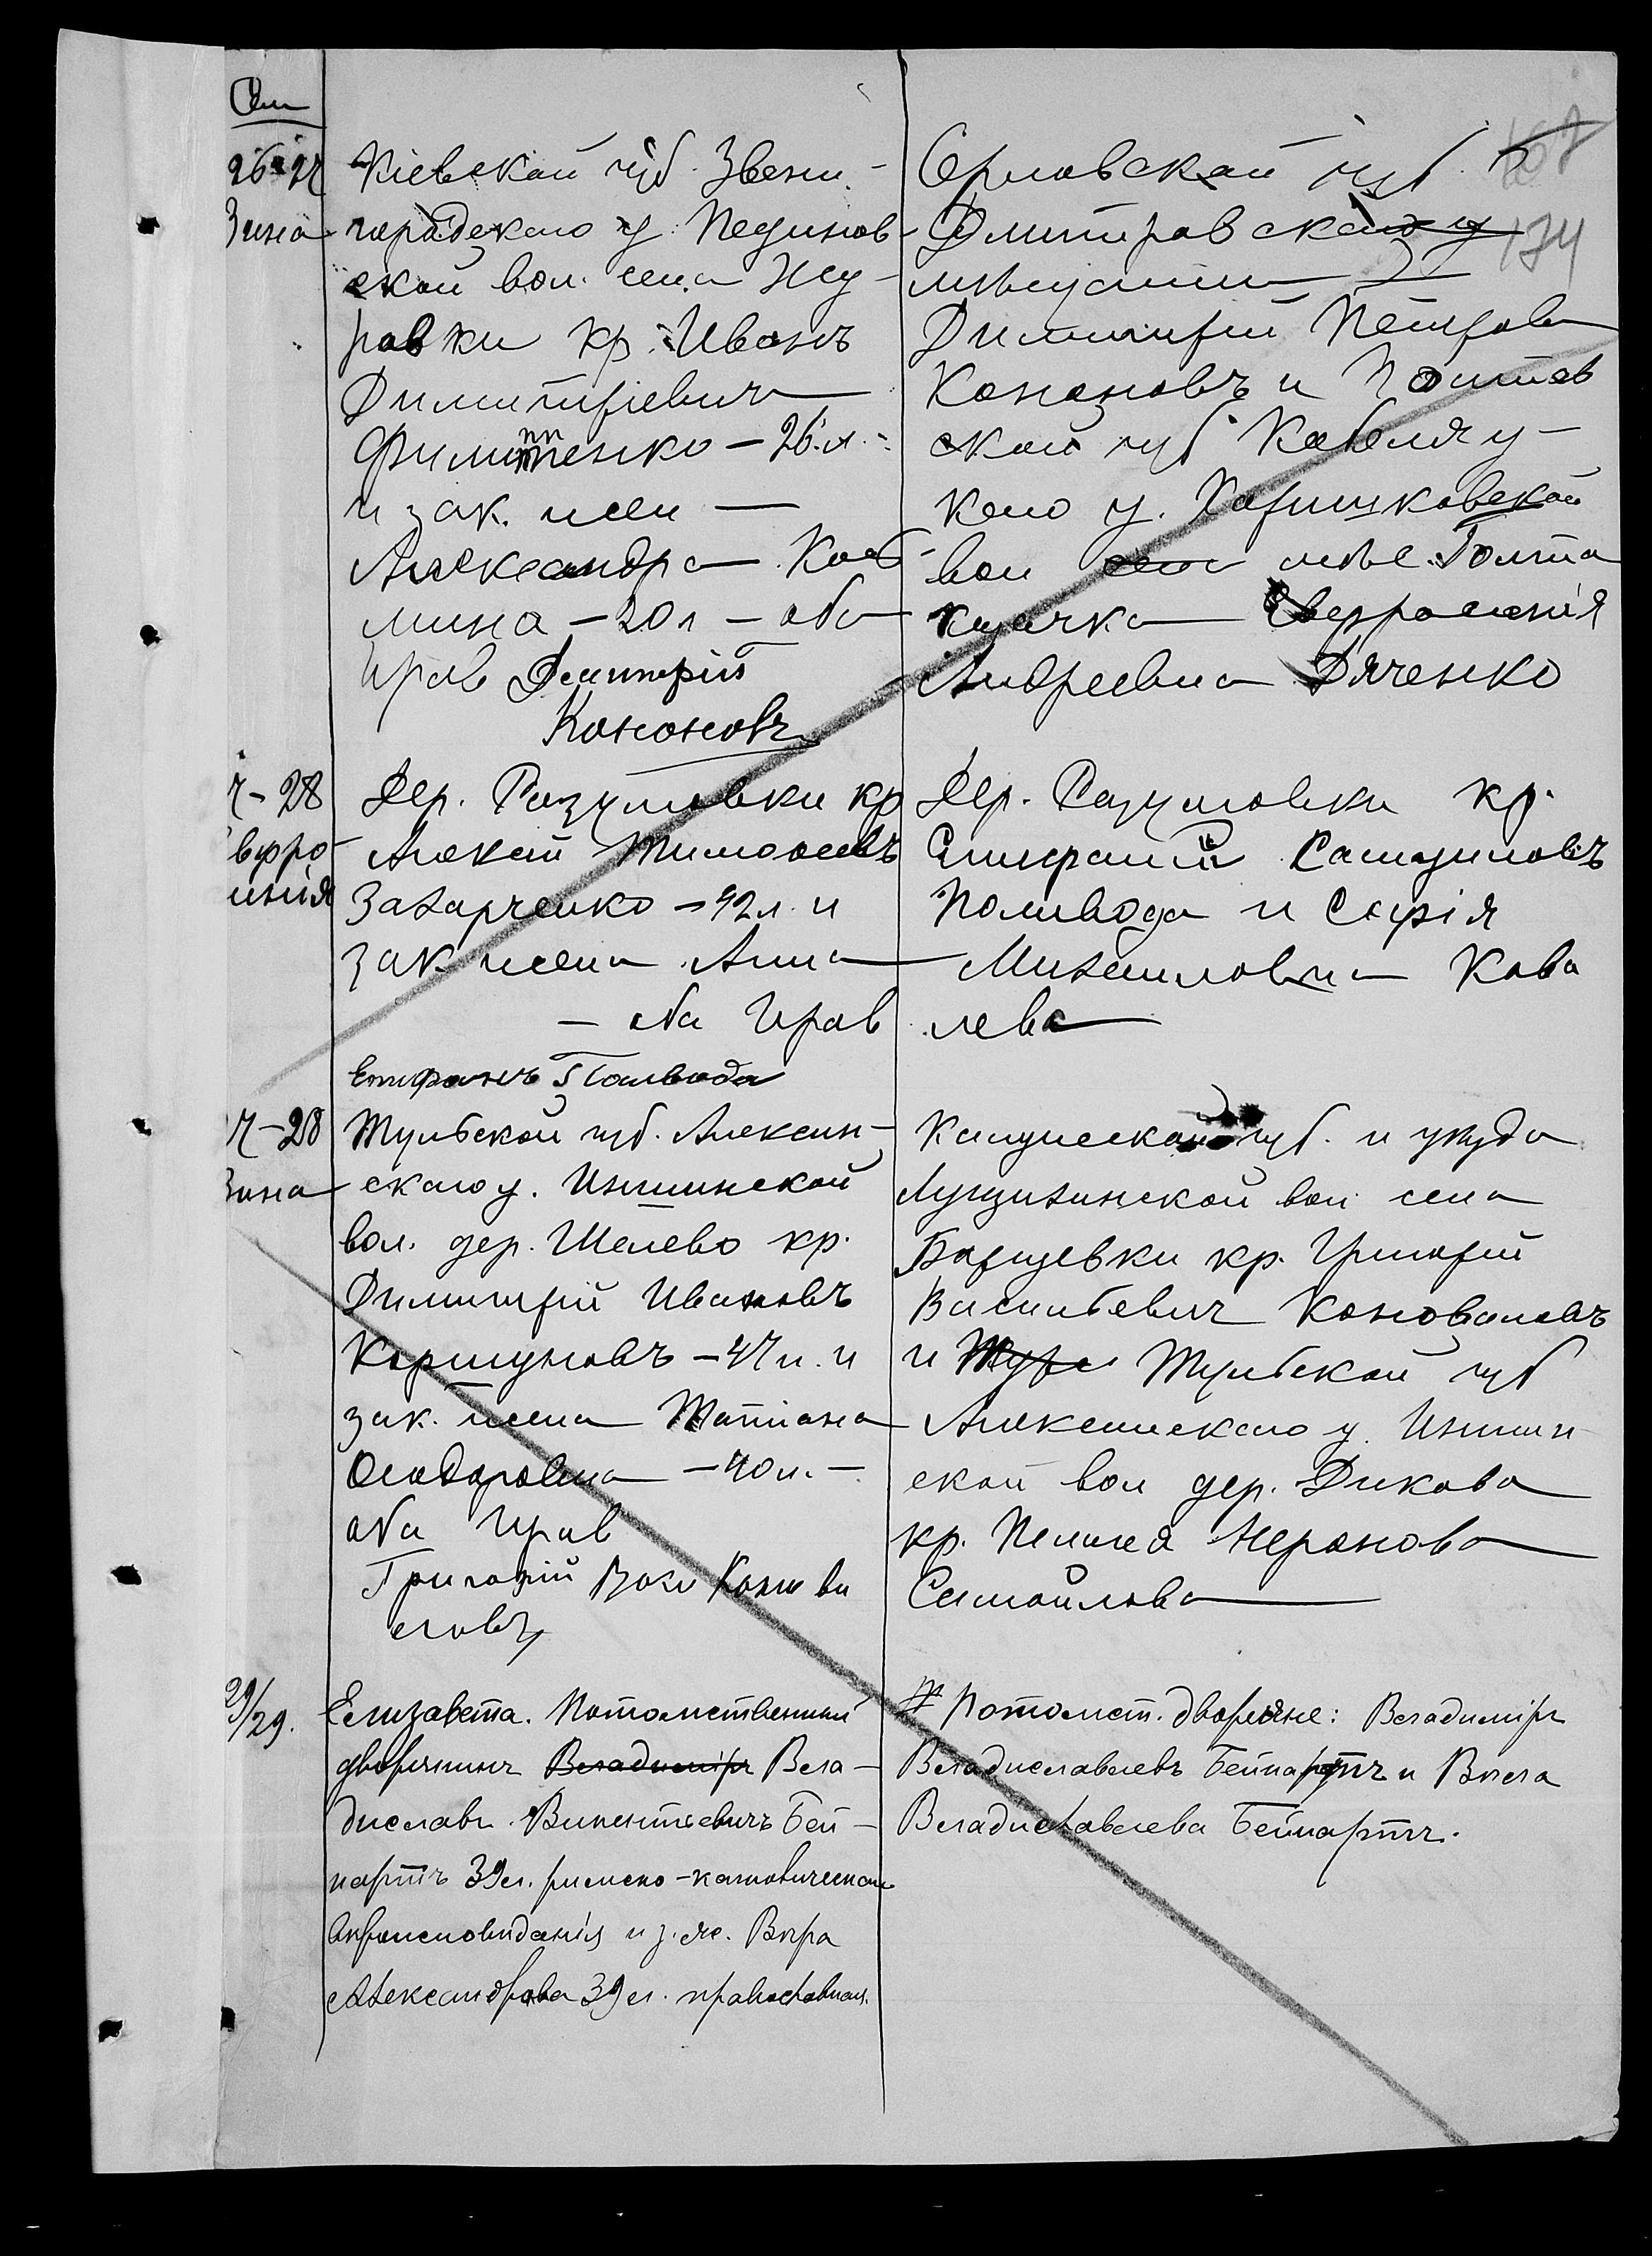 Сен
26-27
Зина
Кіевской губ. Звени-
городскаго у. Пединов-
ской вол. села Жу-
равки кр. Иванъ
Димитріевич
Филиппенко – 26 л.
и зак. жен –
Александра Косб-
мина – 20 л – оба
прав Димитрій
Кононовъ
Орловской губ.
Дмитровскаго у
мѣщанин
174
Димитрій Петров
Кононовъ и Полтав
ской губ Кобеляч у-
каго у. Хоришковской
вол села мѣс. Голта
казачка Евфросинія
Андреевна Дяченко
7-28
вфро
инія
Дер. Разумовки кр
Алексій Тимоѳеевъ
Захарченко – 42 л. и
зак. жена Анна
– оба прав
Епифанъ Поливода
Дер. Разумовки кр.
Епифаній Самуиловъ
Поливода и Софія
Михаиловна Кова
лева
7-28
Зина
Тульской губ. Алексин-
скаго у. Иншинской
вол. дер. Шелево кр.
Димитрій Ивановъ
Коршуновъ – 47 л. и
зак. жена Татіана
Ѳеодоровна – 40 л. –
оба прав
Григорій Вас Коно ва
ловъ
Калужской губ. и уѣзда
вол. села
Борщевки кр. Григорій
Васильевич Коноваловъ
и Тул Тульской губ
Алексинскаго у. Иншин
ской вол дер. Дикова
кр. Пелагея Неронова
Самойлова
29/29.
Елизавета. Потомственный
дворянинъ Владиміръ Вла-
диславъ Викентьевичъ Бей-
нартъ 39 л. римско-католическаго
вѣроисповѣданія и з. ж. Вѣра
Александрова 39 л. православная.
Потомст. дворяне: Владиміръ
Владиславлевъ Бейнартъ и Вѣра
Владиславлева Бейнартъ.